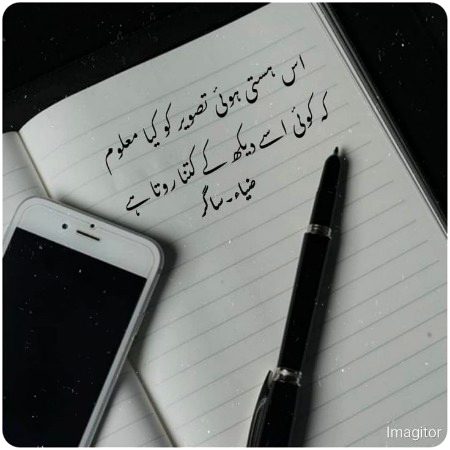 اس ہستی ہوئی تصویر کو کیا معلوم
کہ کوئی اسے دیکھ کے کتنا روتا ہے
ضیاء۔ساگر
Imagitor